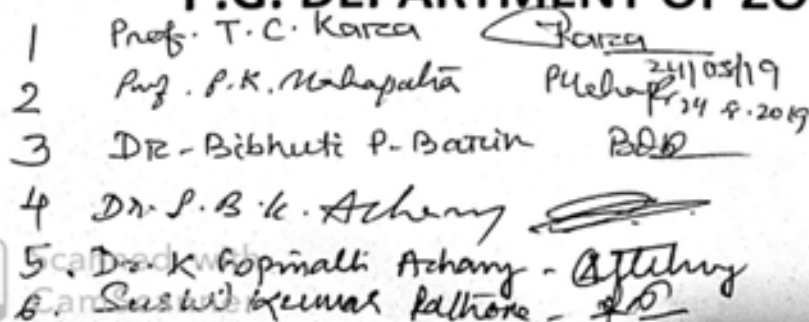 P.G. DEPARTMENT OF ZO
1 Prof. T. C. Kara Kara 24/05/19
2 Prof. P. K. Mahapatra 24.5.2019
3 DR. Bibhuti P. Barik BPB
4 Dr. S. B. K. Achary
5. Dr. K Gopinath Achary -
6. Sushil Kumar Rathore -
Scanned with
Cam